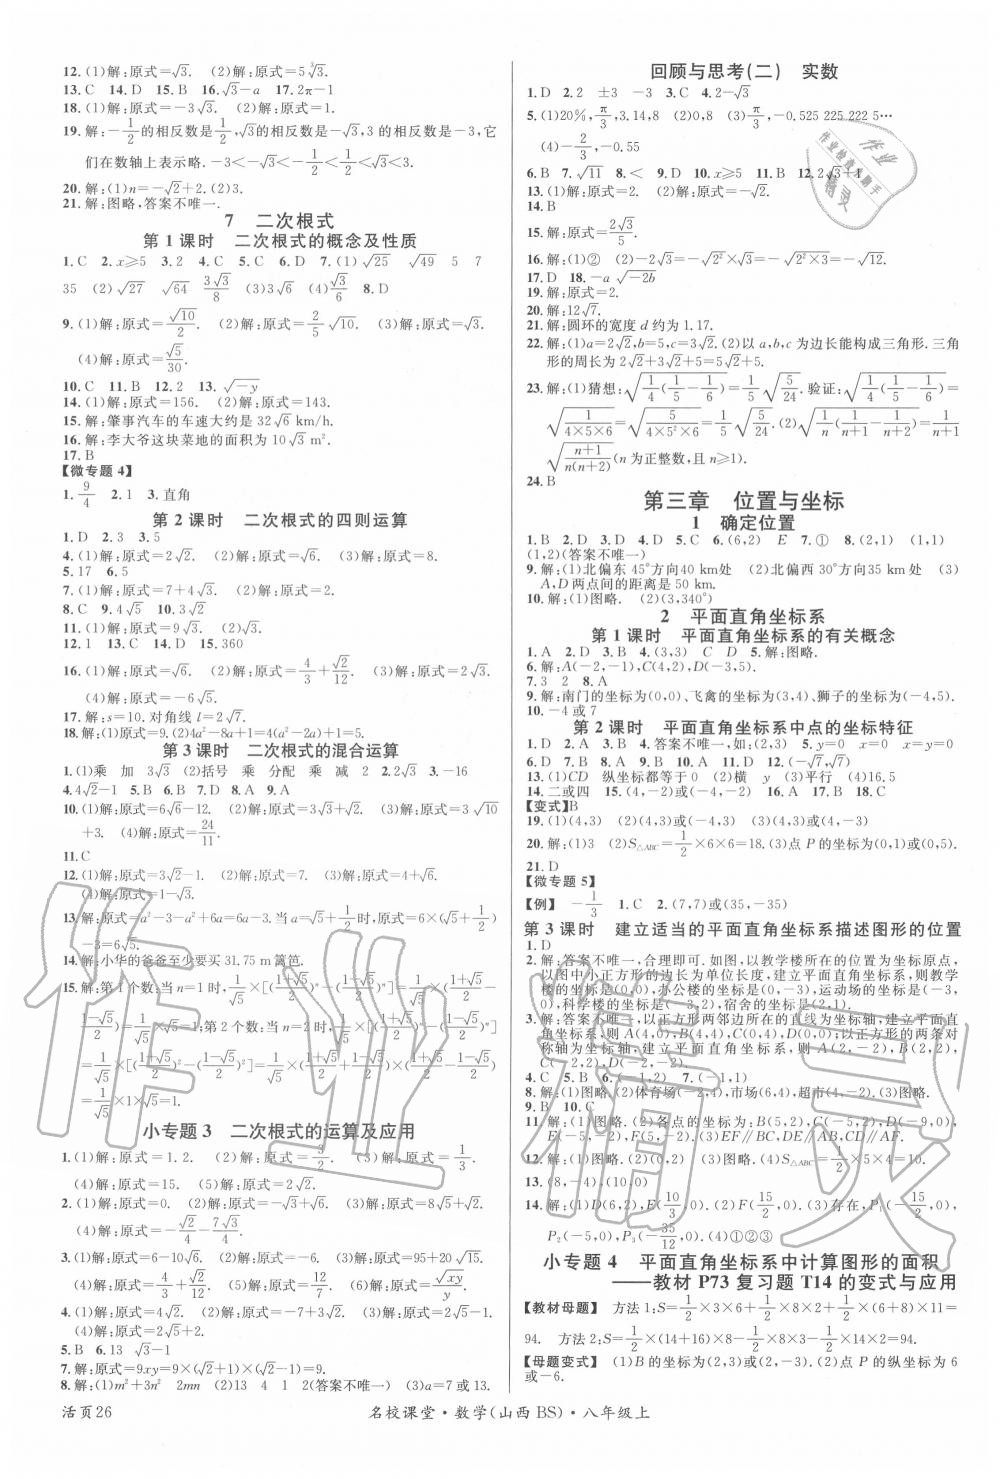 12.(1)解:原式=√3.　(2)解:原式=5∛3.
13.C　14.D　15.B　16.√3-a　17.2π-1
18.(1)解:原式=-3√3.　(2)解:原式=1.
19.解:-1/2的相反数是1/2,√3的相反数是-√3,3的相反数是-3,它
们在数轴上表示略.-3<-√3<-1/2<1/2<√3<3.
20.解:(1)n=-√2+2.(2)3.
21.解:图略,答案不唯一.
7　二次根式
第1课时　二次根式的概念及性质
1.C　2.x≥5　3.2　4.C　5.C　6.D　7.(1)√25　√49　5　7
35　(2)√27　√64　3√3/8　(3)2√3　(4)√3/6　8.D
9.(1)解:原式=√10/2.　(2)解:原式=2/5√10.　(3)解:原式=3√3.
(4)解:原式=√5/30.
10.C　11.B　12.2　13.√-y
14.(1)解:原式=156.　(2)解:原式=143.
15.解:肇事汽车的车速大约是32√6 km/h.
16.解:李大爷这块菜地的面积为10√3 m².
17.B
【微专题4】
1.9/4　2.1　3.直角
第2课时　二次根式的四则运算
1.D　2.3　3.5
4.(1)解:原式=2√2.　(2)解:原式=√6.　(3)解:原式=8.
5.17　6.5
7.(1)解:原式=7+4√3.　(2)解:原式=1.
8.C　9.4√5　10.3√2
11.(1)解:原式=9√3.　(2)√3.
12.1　13.C　14.D　15.360
16.(1)解:原式=√6.　(2)解:原式=4/3+√2/12.　(3)解:原式=2√3.
(4)解:原式=-6√5.
17.解:s=10.对角线l=2√7.
18.解:(1)原式=9.(2)4a²-8a+1=4(a²-2a)+1=5.
第3课时　二次根式的混合运算
1.(1)乘　加　3√3　(2)括号　乘　分配　乘　减　2　2.√3　3.-16
4.4√2-1　5.B　6.B　7.D　8.A　9.A
10.(1)解:原式=6√6-12.　(2)解:原式=3√3+√2.　(3)解:原式=3√10
+3.　(4)解:原式=24/11.
11.C
12.(1)解:原式=3√2-1.　(2)解:原式=6.　(3)解:原式=9.
(4)解:原式=2√6.
13.解:原式=a²-3-a²+6a=6a-3.当a=√5+1/2时,原式=6×(√5+1/2
)-3=6√5.
14.解:小华的爸爸至少要买31.75 m篱笆.
15.解:第1个数:当n=1时,1/√5×[((1+√5)/2)ⁿ-((1-√5)/2)ⁿ]=1/√5×((1+√5)/2-
(1-√5)/2)=1/√5×√5=1;第2个数:当n=2时,1/√5×[((1+√5)/2)ⁿ-((1-√5)/2)ⁿ]
=1/√5×[((1+√5)/2)²-((1-√5)/2)²]=1/√5×((1+√5)/2+(1-√5)/2)×((1+√5)/2-(1-√5)/2)
=1/√5×1×√5=1.
小专题3　二次根式的运算及应用
1.(1)解:原式=1.2.　(2)解:原式=3/2.　(3)解:原式=1/3.
(4)解:原式=15.　(5)解:原式=2.
2.(1)解:原式=0.　(2)解:原式=-√3+√6.　(3)解:原式=8√5+√3.
(4)解:原式=-√2/4-7√3/4.
3.(1)解:原式=6-10√15.　(2)解:原式=-6.　(3)解:原式=95+20√15.
(4)解:原式=4/3+√2/12.　(5)解:原式=12/7.　(6)解:原式=√xy/y.
4.(1)解:原式=4√2.　(2)解:原式=-7+3√2.　(3)解:原式=2√5-1.
(4)解:原式=2√5+2.
5.B　6.13　√3-1
7.解:原式=9xy=9×(√2+1)(√2-1)=9.
8.解:(1)m²+3n²　2mn　(2)13　4　1　2(答案不唯一)　(3)a=7或13.
回顾与思考(二)　实数
1.D　2.2　±3　-3　3.C　4.2-√3
5.(1)20%,π/3,3.14,8　(2)0　(3)π/3,-0.525 225 222 5…
(4)-2/3,-0.55
6.B　7.√11　8.<　9.D　10.x≥5　11.B　12.2√3+4
13.(1)解:原式=2.　(2)解:原式=-√2.
14.B
15.解:原式=2√3/5.
16.解:(1)②　(2)-2√3=-√2²×√3=-√2²×3=-√12.
17.D　18.-a√-2b
19.解:原式=2.
20.解:12√7.
21.解:圆环的宽度d约为1.17.
22.解:(1)a=2√2,b=5,c=3√2.(2)以a,b,c为边长能构成三角形.三角
形的周长为2√2+3√2+5=5√2+5.
23.解:(1)猜想:√(1/4(1/5-1/6))=1/5√(5/24).验证:√(1/4(1/5-1/6))=
√(1/(4×5×6))=√(5/(4×5²×6))=1/5√(5/24).(2)√(1/n(1/(n+1)-1/(n+2)))=1/(n+1)
√((n+1)/(n(n+2)))(n为正整数,且n≥1).
24.B
第三章　位置与坐标
1　确定位置
1.B　2.D　3.D　4.D　5.C　6.(6,2)　E　7.①　8.(2,1)　(1,1)
(1,2)(答案不唯一)
9.解:(1)北偏东45°方向40 km处　(2)北偏西30°方向35 km处　(3)
A,D两点间的距离是50 km.
10.解:(1)图略.　(2)(3,340°)
2　平面直角坐标系
第1课时　平面直角坐标系的有关概念
1.A　2.D　3.B　4.(3,3)　C　D　5.解:图略.
6.解:A(-2,-1),C(4,2),D(-3,5).
7.3　2　8.A
9.解:南门的坐标为(0,0),飞禽的坐标为(3,4),狮子的坐标为(-4,5).
10.-4或7
第2课时　平面直角坐标系中点的坐标特征
1.D　2.A　3.B　4.答案不唯一,如:(2,3)　5.y=0　x=0　x=0
6.D　7.B　8.A　9.B　10.A　11.D　12.(-√7,√7)
13.(1)CD　纵坐标都等于0　(2)横　y　(3)平行　(4)16.5
14.二或四　15.(4,-2)或(-4,-2)　16.A　17.B　18.C
【变式】B
19.(1)(4,3)　(2)(4,3)或(-4,3)　(3)(4,3)或(4,-3)
20.解:(1)3　(2)S△ABC=1/2×6×6=18.(3)点P的坐标为(0,1)或(0,5).
21.D
【微专题5】
【例】　-1/3　1.C　2.(7,7)或(35,-35)
第3课时　建立适当的平面直角坐标系描述图形的位置
1.D
2.解:答案不唯一,合理即可.如:以教学楼所在的位置为坐标原点,
以图中小正方形的边长为单位长度,建立平面直角坐标系,则教学
楼的坐标是(0,0),办公楼的坐标是(-2,0),运动场的坐标是(-3,
0),科学楼的坐标是(-3,2),宿舍的坐标是(2,1).
3.解:答案不唯一,以正方形两邻边所在的直线为坐标轴,建立平面直
角坐标系,则A(4,0),B(4,4),C(0,4),D(0,0);以正方形的两条对
称轴为坐标轴,建立平面直角坐标系,则A(2,-2),B(2,2),
C(-2,2),D(-2,-2).
4.C　5.B　6.(-1,2)　7.(-1,1)
8.解:(1)图略.(2)体育场(-2,4),市场(6,4),超市(4,-2).(3)图略.
9.B　10.C
11.解:(1)图略.(2)各点的坐标为:B(5,2),C(-5,2),D(-9,0),
E(-5,-2),F(5,-2).(3)EF∥BC,DE∥AB,CD∥AF.
12.解:(1)图略.(2)图略.(3)(0,0).(4)S△ABC=1/2×5×4=10.
13.(8,-4),(10,0)
14.解:(1)D(6,2),E(10/3,0).(2)F(15/2,0).(3)存在,P₁(-15/2,0),
P₂(-5/2,0),P₃(-35/12,0).(4)①②③
小专题4　平面直角坐标系中计算图形的面积
——教材P73复习题T14的变式与应用
【教材母题】　方法1:S=1/2×3×6+1/2×8×2+1/2×(6+8)×11=
94.　方法2:S=1/2×(14+16)×8-1/2×2×6-1/2×14×2=94.
【母题变式】　(1)B的坐标为(2,0)或(-4,0).　(2)6.(3)点P的纵坐标为6
或-6.
活页26　名校课堂·数学(山西BS)·八年级上
作业
作业检查小助手
精灵
作业精灵